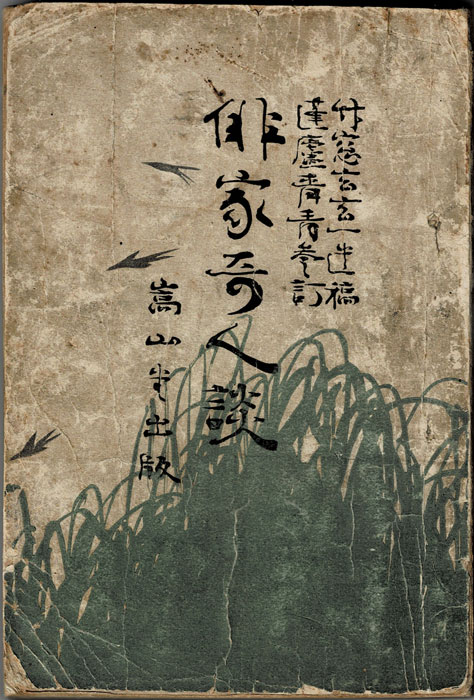 竹窓玄玄一遺稿
蓬廬青青参訂
俳家奇人談
嵩山堂出版